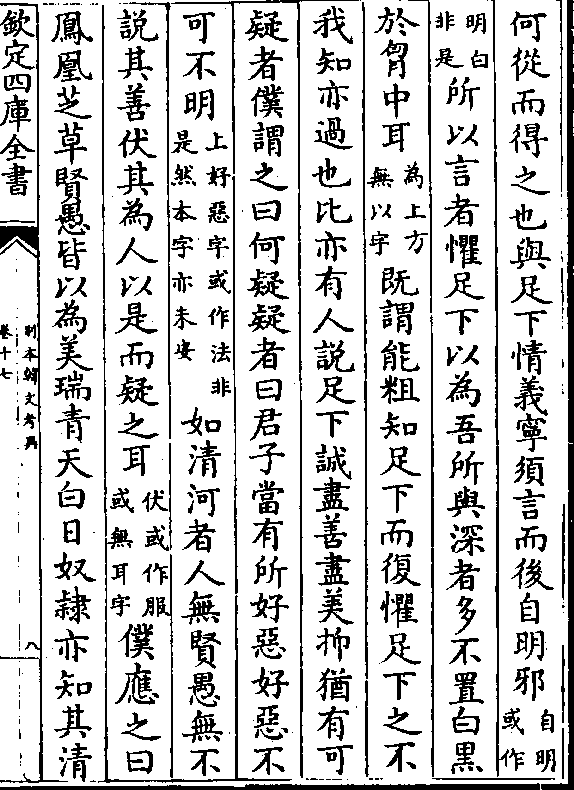 何從而得之也與足下情義寧須言而後自明邪自明或作
明白非是所以言者懼足下以為吾所與深者多不置白黑
於胷中耳為上方無以字既謂能粗知足下而復懼足下之不
我知亦過也比亦有人說足下誠盡善盡美抑猶有可
疑者僕謂之曰何疑疑者曰君子當有所好惡好惡不
可不明上好惡字或作法非是然本字亦未安如清河者人無賢愚無不
說其善伏其為人以是而疑之耳伏或作服或無耳字僕應之曰
鳳凰芝草賢愚皆以為美瑞青天白日奴隸亦知其清
欽定四庫全書
別本韓文考異
卷十七
八